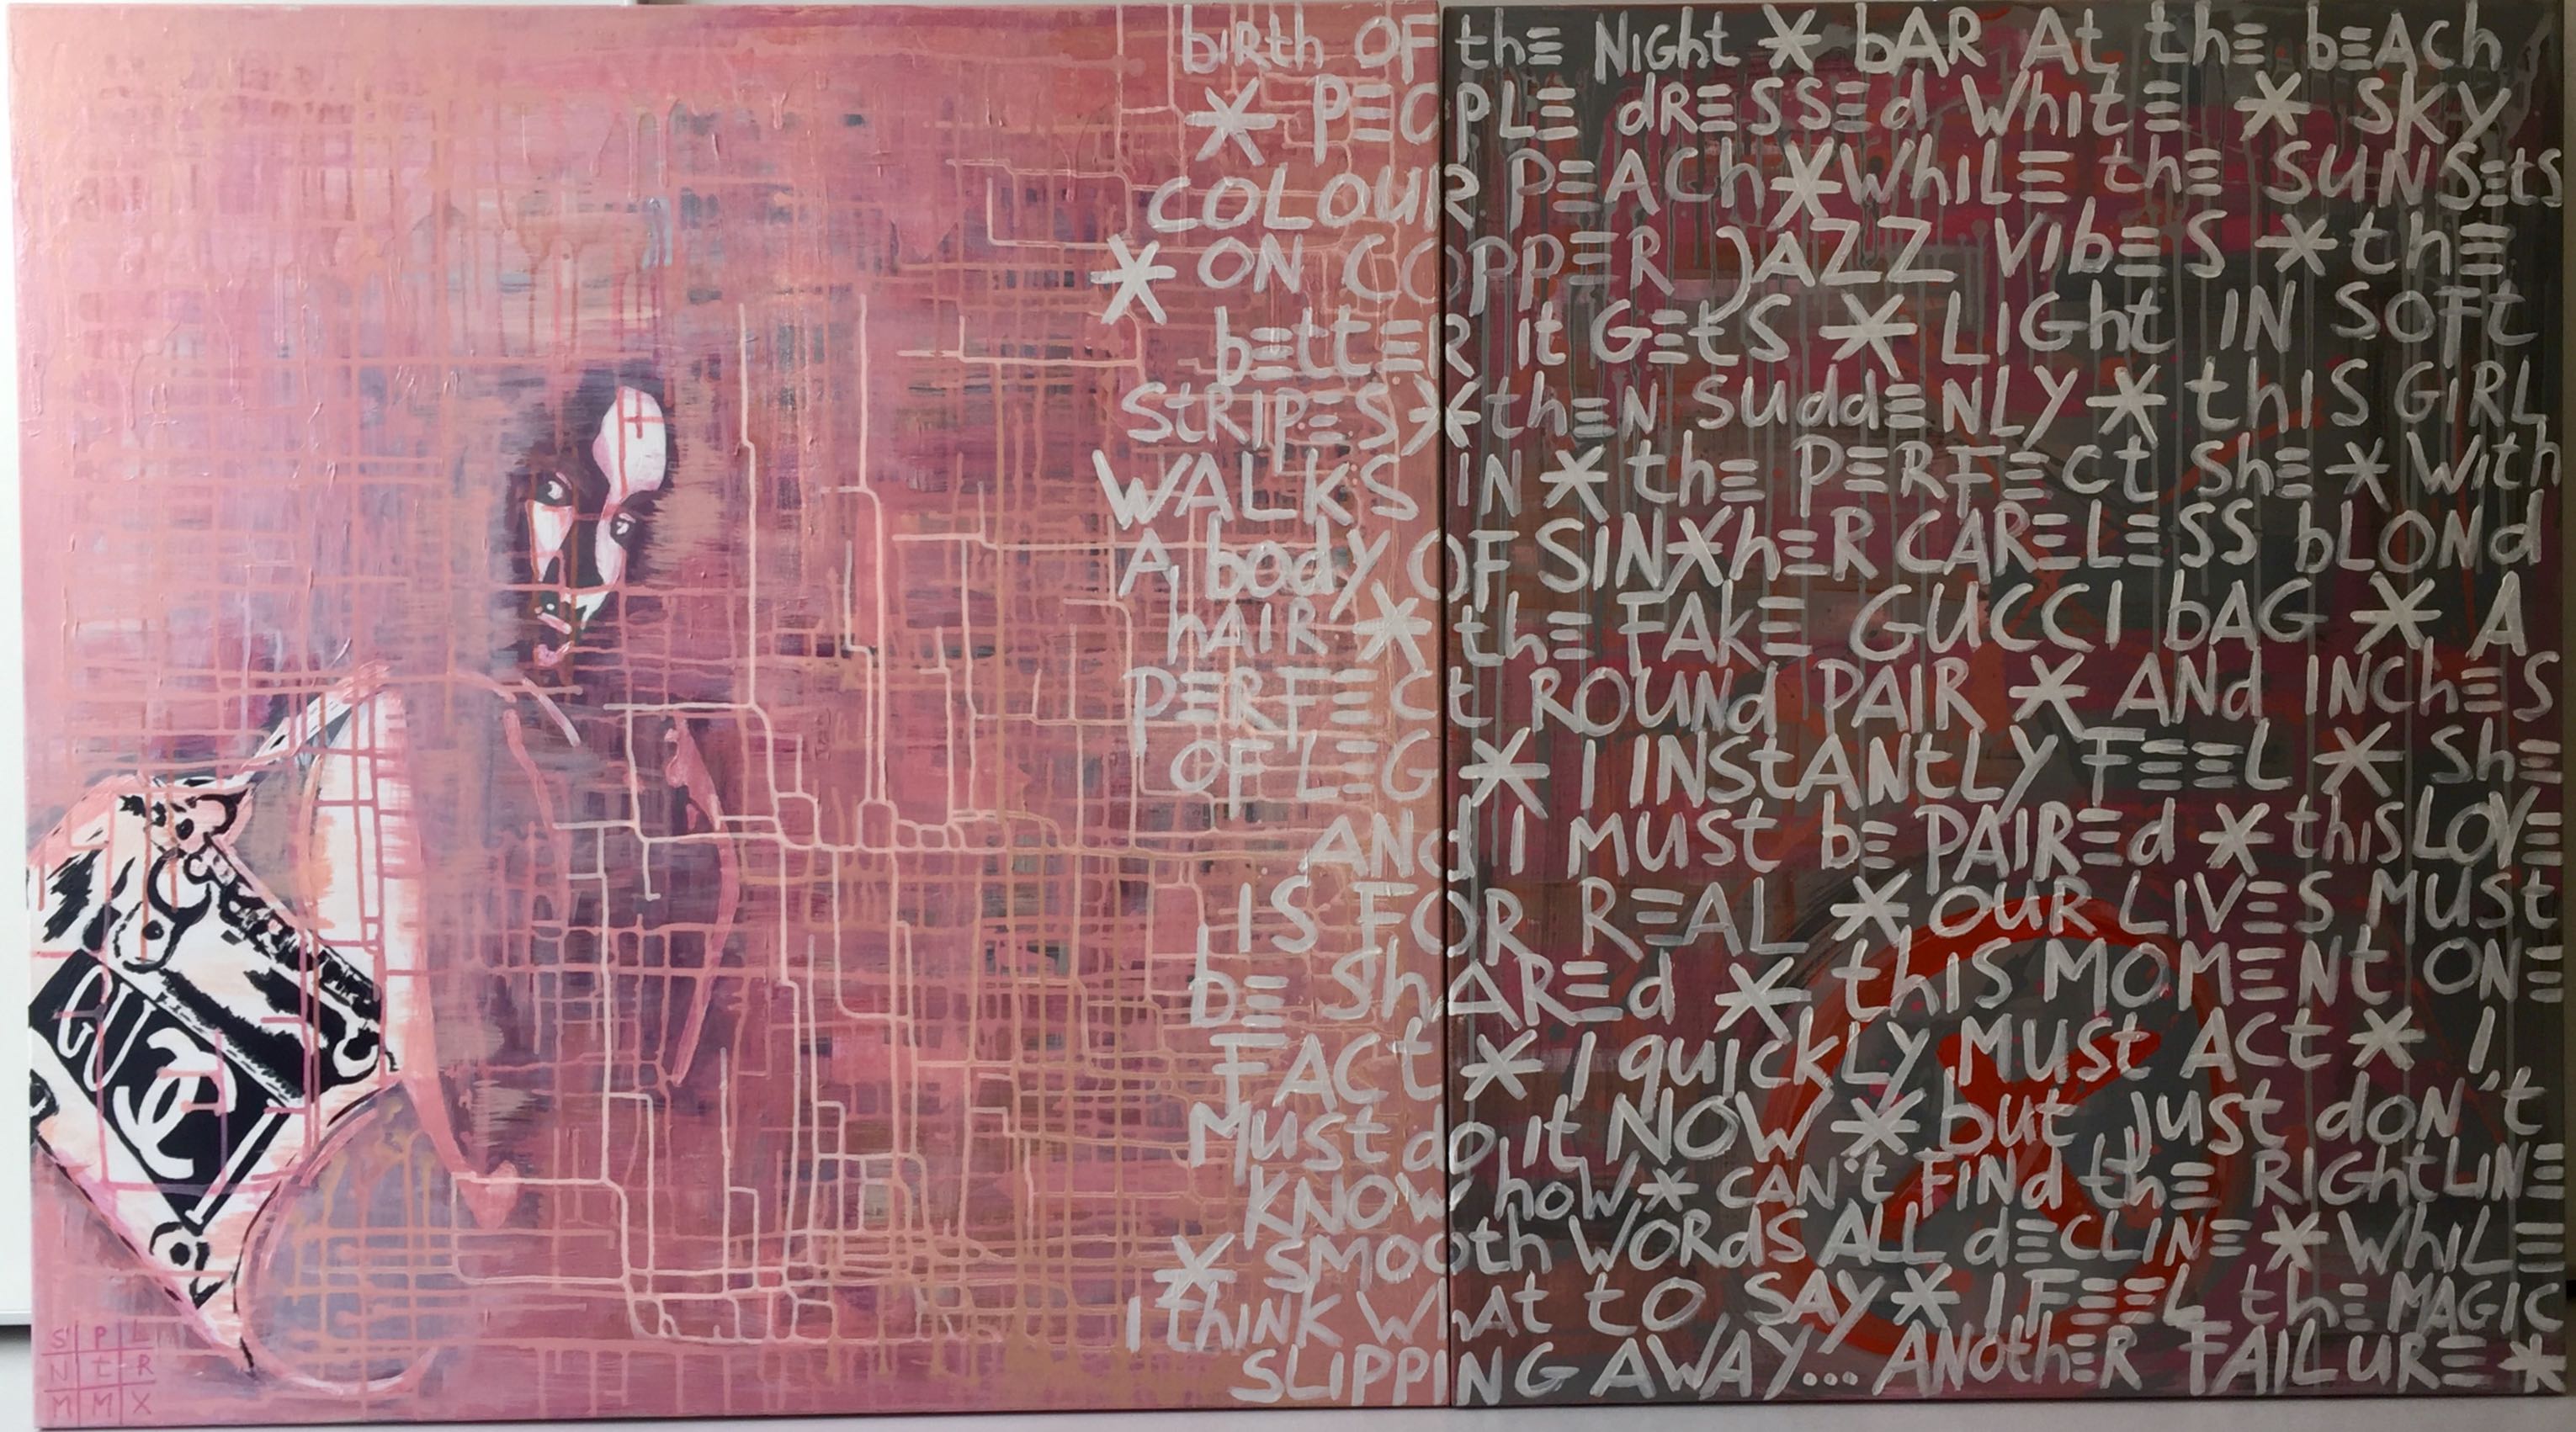 bIRth OF thE NIGht * bAR At thE bEACh
* PEOPLE dRESSEd WhItE * SKY
COLOUR PEACh * WhILE thE SUN SEtS
* ON COPPER JAZZ VIbES * thE
bEttER It GEtS * LIGht IN SOFt
StRIPES * thEN SuddENLY * thIS GIRL
WALKS IN * thE PERFECt ShE * WIth
A bodY OF SIN * hER CARELESS bLONd
hAIR * thE FAKE GUCCI bAG * A
PERFECt ROUNd PAIR * ANd INChES
OF LEG * I INStANtLY FEEL * ShE
ANd I MUSt bE PAIREd * thIS LOVE
IS FOR REAL * OUR LIVES MUSt
bE ShAREd * thIS MOMENt ONE
FACt * I quICKLY MUSt ACt * I
MuSt do It NOW * but JuSt doN't
KNOW hoW * CAN't FINd thE RIGht LINE
* SMOOth WORdS ALL dECLINE * WhILE
I thINK WhAt tO SAY * I FEEL thE MAGIC
SLIPPING AWAY... ANOthER FAILURE *
GUCCI
S P L
N t R
M M X